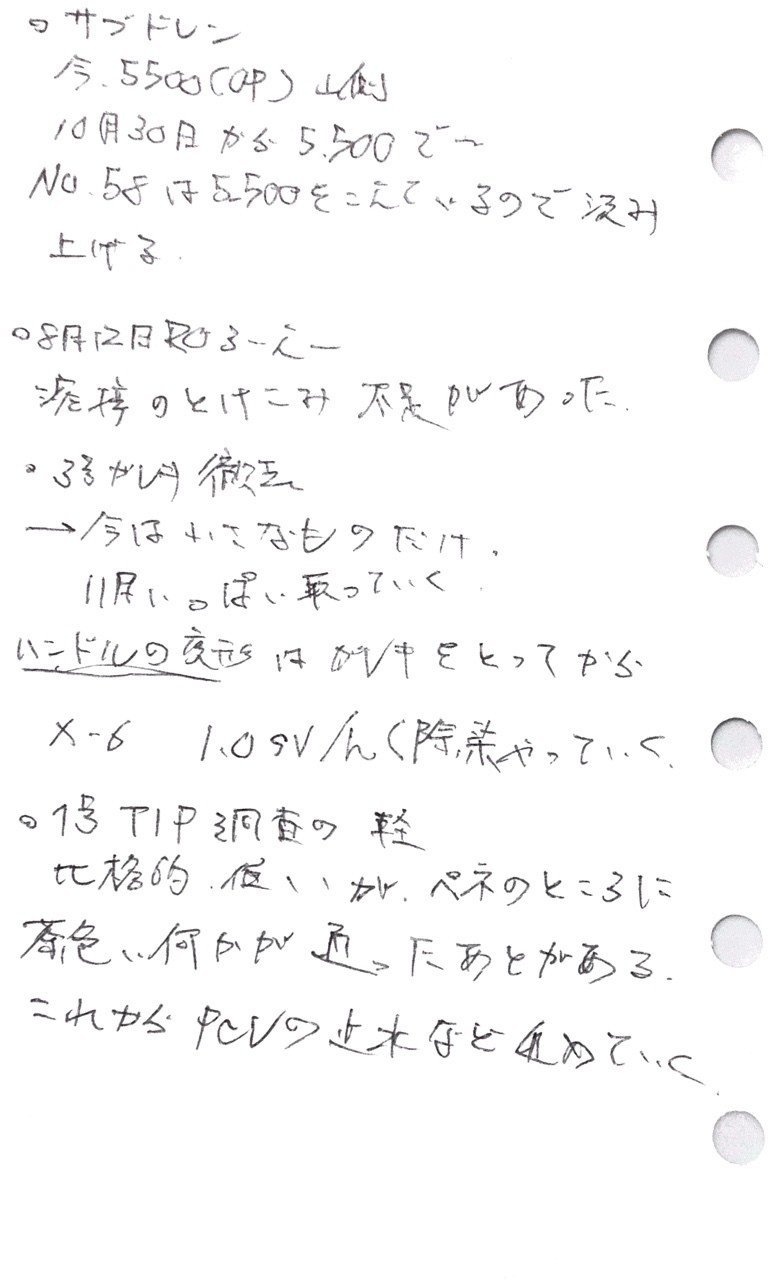 ○サブドレン
今.5500(OP) 山側
10月30日から 5.500で〜
NO.58は5.500をこえているので汲み
上げる.
○8月12日ROろーえー
溶接のとけこみ 不足があった.
・3号ガレキ 撤去
→今は小さなものだけ.
11月いっぱい取っていく.
ハンドルの変形はガレキをとってから
X-6 1.0SV/h 除染やっていく.
○1号TIP調査の
比格的.低いが.ペネのところに
茶色い何かが 通ったあとがある.
これからPCVの止水など進めていく.